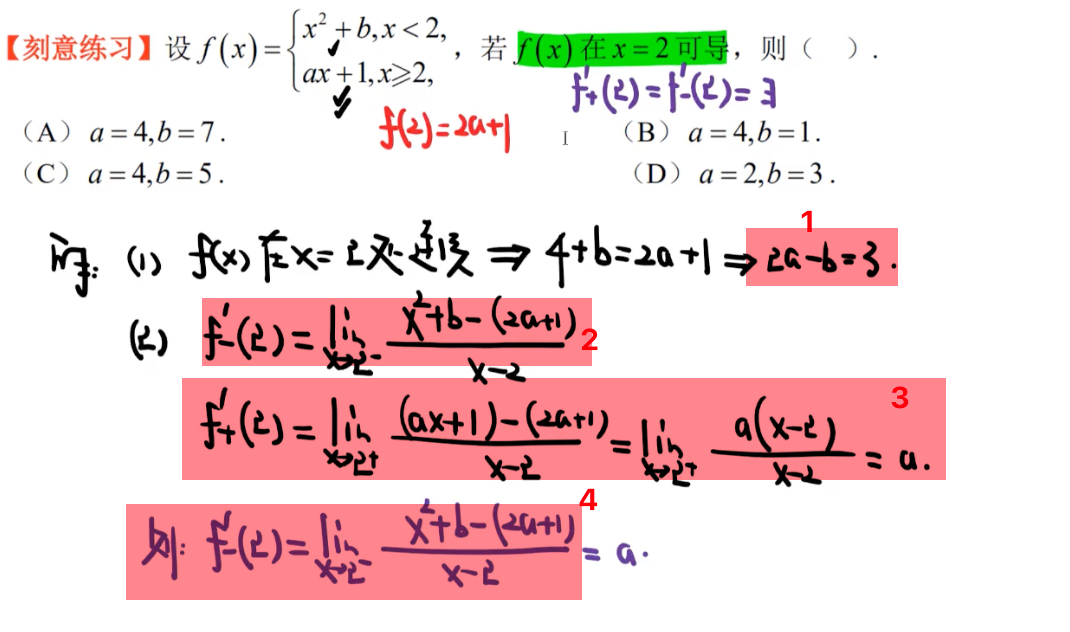 【刻意练习】设 f(x)={x²+b,x<2, ax+1,x≥2, ，若 f(x) 在 x=2 可导，则（　）.
f'₊(2)=f'₋(2)=∃
f(2)=2a+1
（A） a=4,b=7.
（B） a=4,b=1.
（C） a=4,b=5.
（D） a=2,b=3.
1
解: (1) f(x) 在x=2处连续 ⇒ 4+b=2a+1 ⇒ 2a-b=3.
(2) f'₋(2)= lim x→2⁻ (x²+b-(2a+1))/(x-2)
2
3
f'₊(2)= lim x→2⁺ ((ax+1)-(2a+1))/(x-2) = lim x→2⁺ a(x-2)/(x-2) = a.
4
则: f'₋(2)= lim x→2⁻ (x²+b-(2a+1))/(x-2) = a.